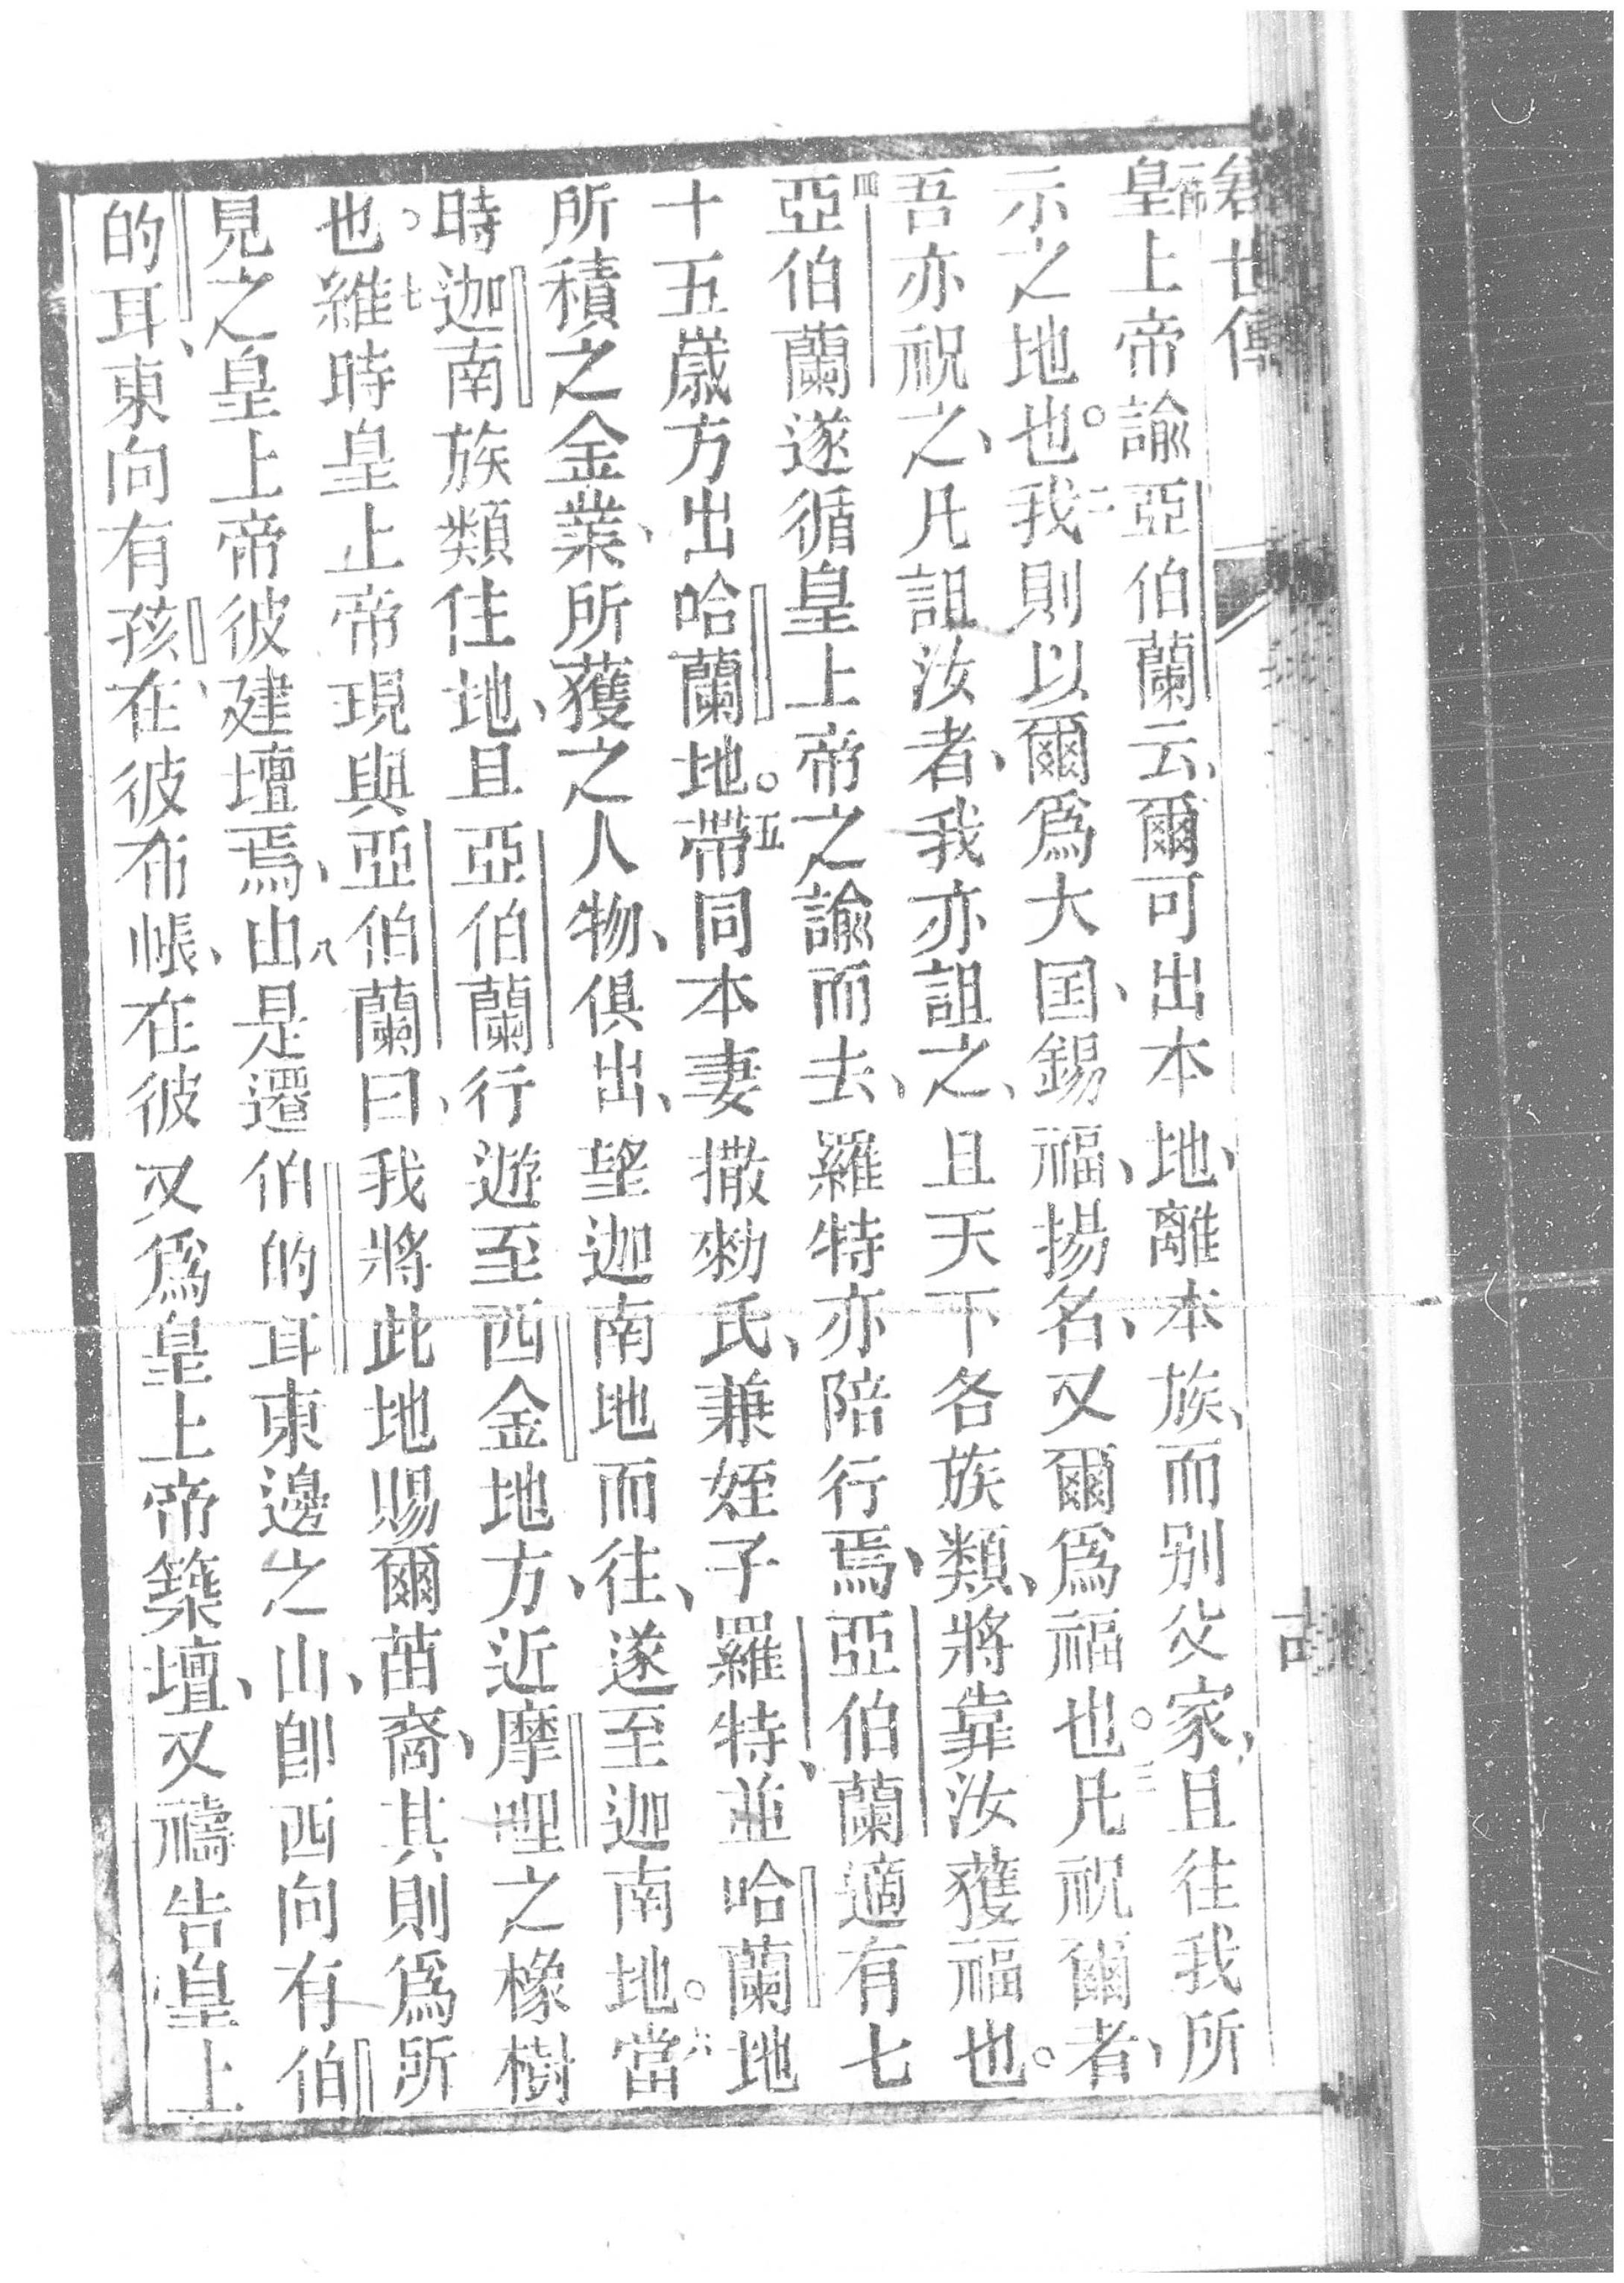 皇上帝諭亞伯蘭云、爾可出本地、離本族、而别父家、且往我所
示之地也。二我則以爾爲大国、錫福、揚名、又爾爲福也。三凡祝爾者、
吾亦祝之、凡詛汝者、我亦詛之、且天下各族類、將靠汝獲福也。
四亞伯蘭遂循皇上帝之諭而去、羅特亦陪行焉、亞伯蘭適有七
十五歲方出哈蘭地。五帶同本妻撒勑氏、兼姪子羅特、並哈蘭地
所積之金業、所獲之人物、俱出、望迦南地而往、遂至迦南地。六當
時迦南族類住地、且亞伯蘭行遊至西金地方、近摩哩之橡樹
也。七維時皇上帝現與亞伯蘭曰、我將此地賜爾苗裔、其則爲所
見之皇上帝彼建壇焉、八由是遷伯的耳東邊之山、卽西向有伯
的耳、東向有孩、在彼布帳、在彼又爲皇上帝築壇、又禱告皇上
世傳